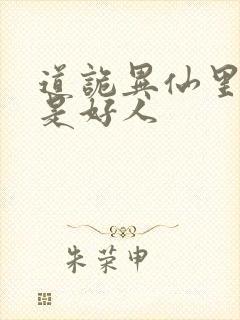 道诡异仙里
是好人
朱荣申